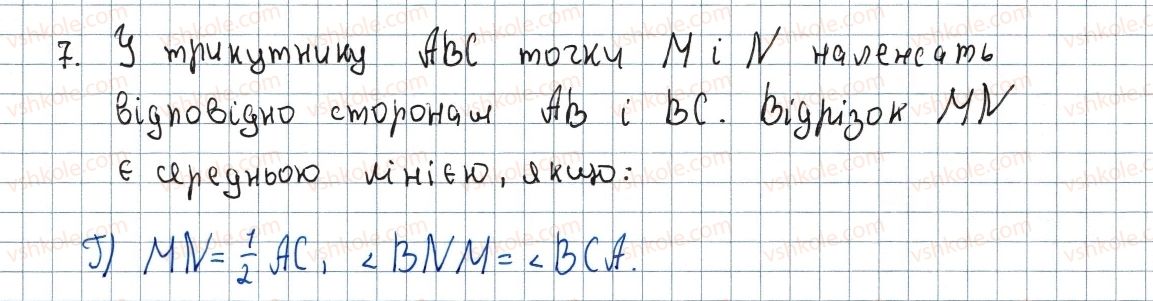 7. У трикутнику ABC точки M і N належать
відповідно сторонам AB і BC. Відрізок MN
є середньою лінією, якщо:
Г) MN = 1/2 AC, ∠BNM = ∠BCA.